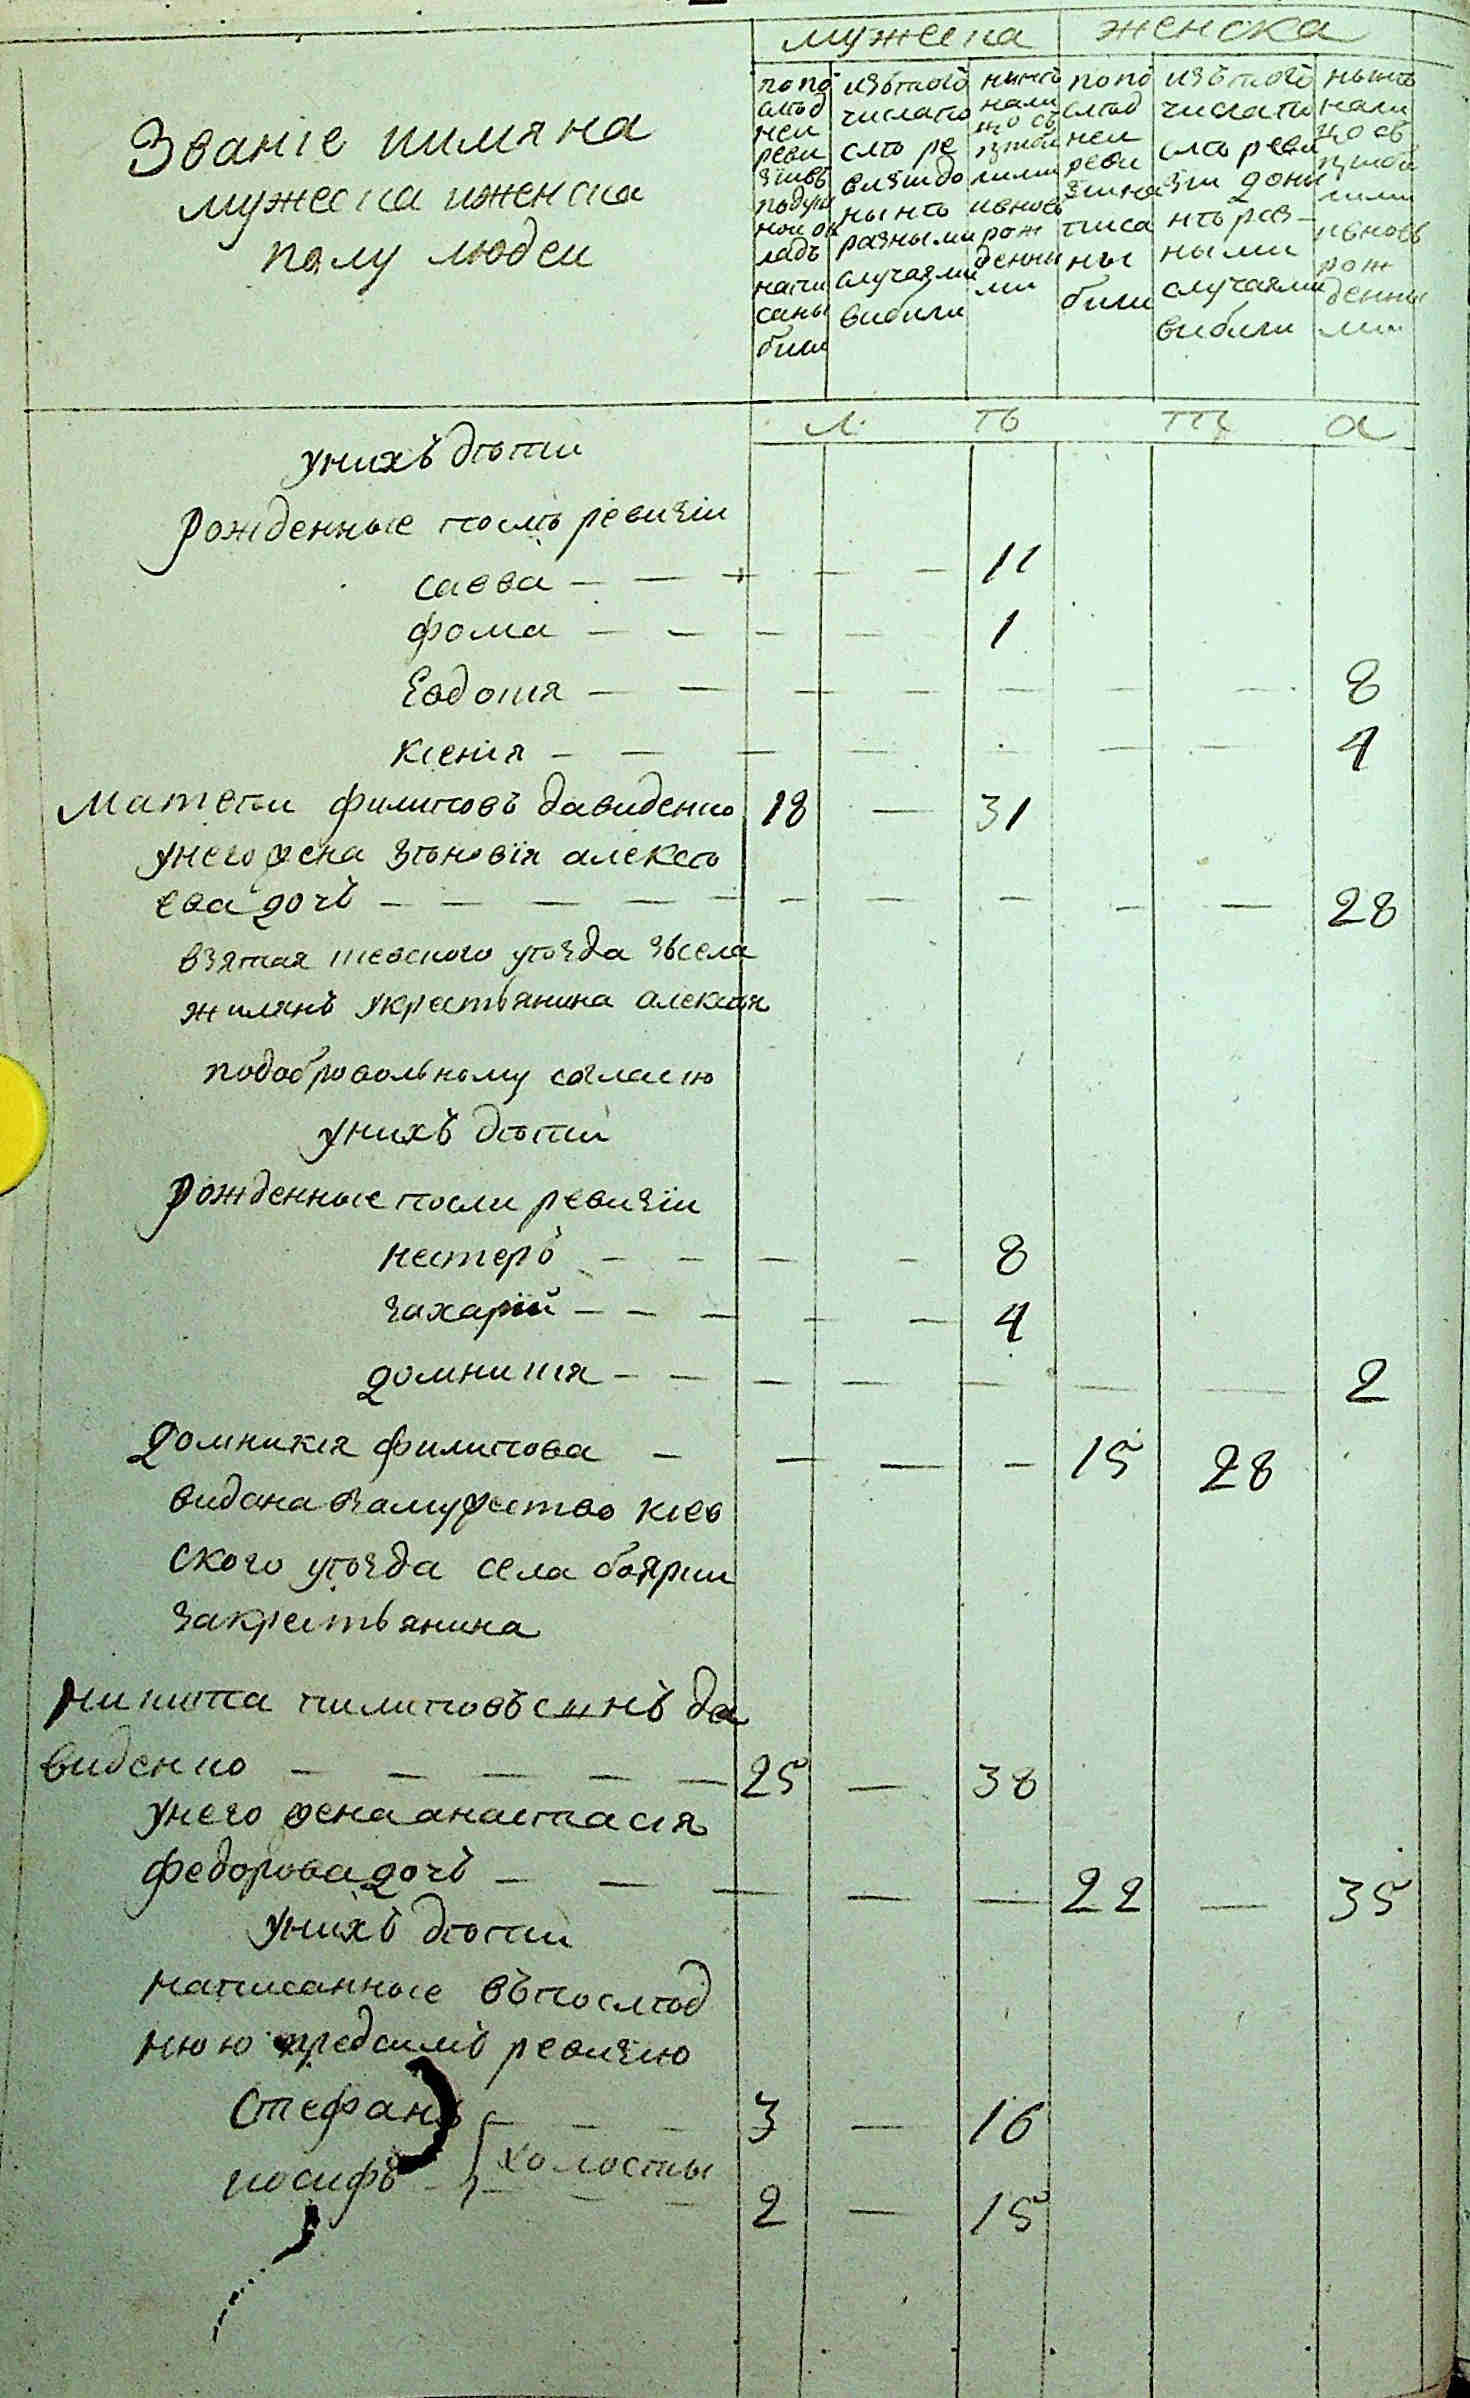 мужеска женска
Званіе имяна
мужеска иженска
полу людеи
попо
слѣд
неи
реви
зіивъ
подуш
нои ок
ладъ
напи
саны
были
изътого
числапо
слѣ ре
визіидо
нынѣ
разными
случаями
выбыли
нынѣ
нали
цо съ
ивновь
рож
денны
ми
попо
слѣд
неи
реви
зіина
писа
ны
были
изътого
числапо
слѣ реви
зіи дони
нѣ раз-
ными
случаями
выбыли
нынѣ
нали
цо съ
ивновь
рож
денны
ми
л ѣ т а
унихъ дѣти
рожденные послѣ ревизіи
савва 11
фома 1
Евдокия 8
ксенія 4
Матвеи филиповъ давиденко 18 — 31
унего жена зѣновія алексѣ
ева дочь 28
взятая киевского уѣзда зьсела
жилянъ укрестьянина алексѣя
подобровольному согласію
унихъ дѣти
рожденные посли ревизіи
нестеръ 8
захарій 4
домникия 2
домникия филипова 15 28
видана взамужество киев
ского уѣзда села боярки
закрестьянина
никита пилиповъ синъ да
виденко 25 — 38
унего жена анастасія
федорова дочь 22 — 35
унихъ дѣти
написанные въпослѣд
нюю предсимъ ревизию
Стефанъ 3 — 16
холосты
иосифъ 2 — 15